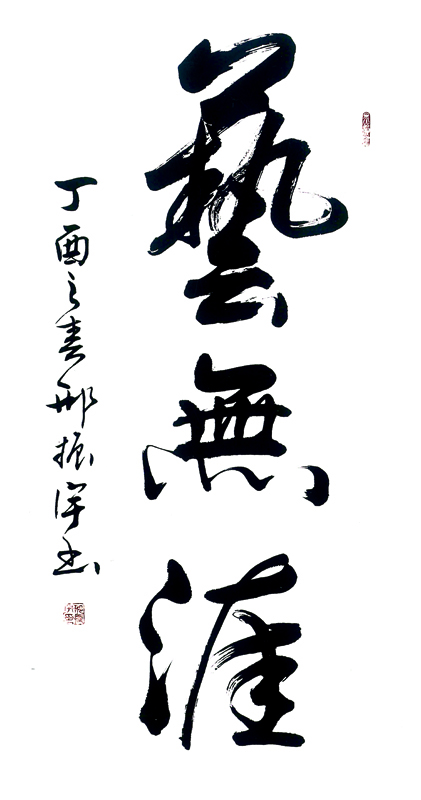 藝無涯
丁酉之春邢振书